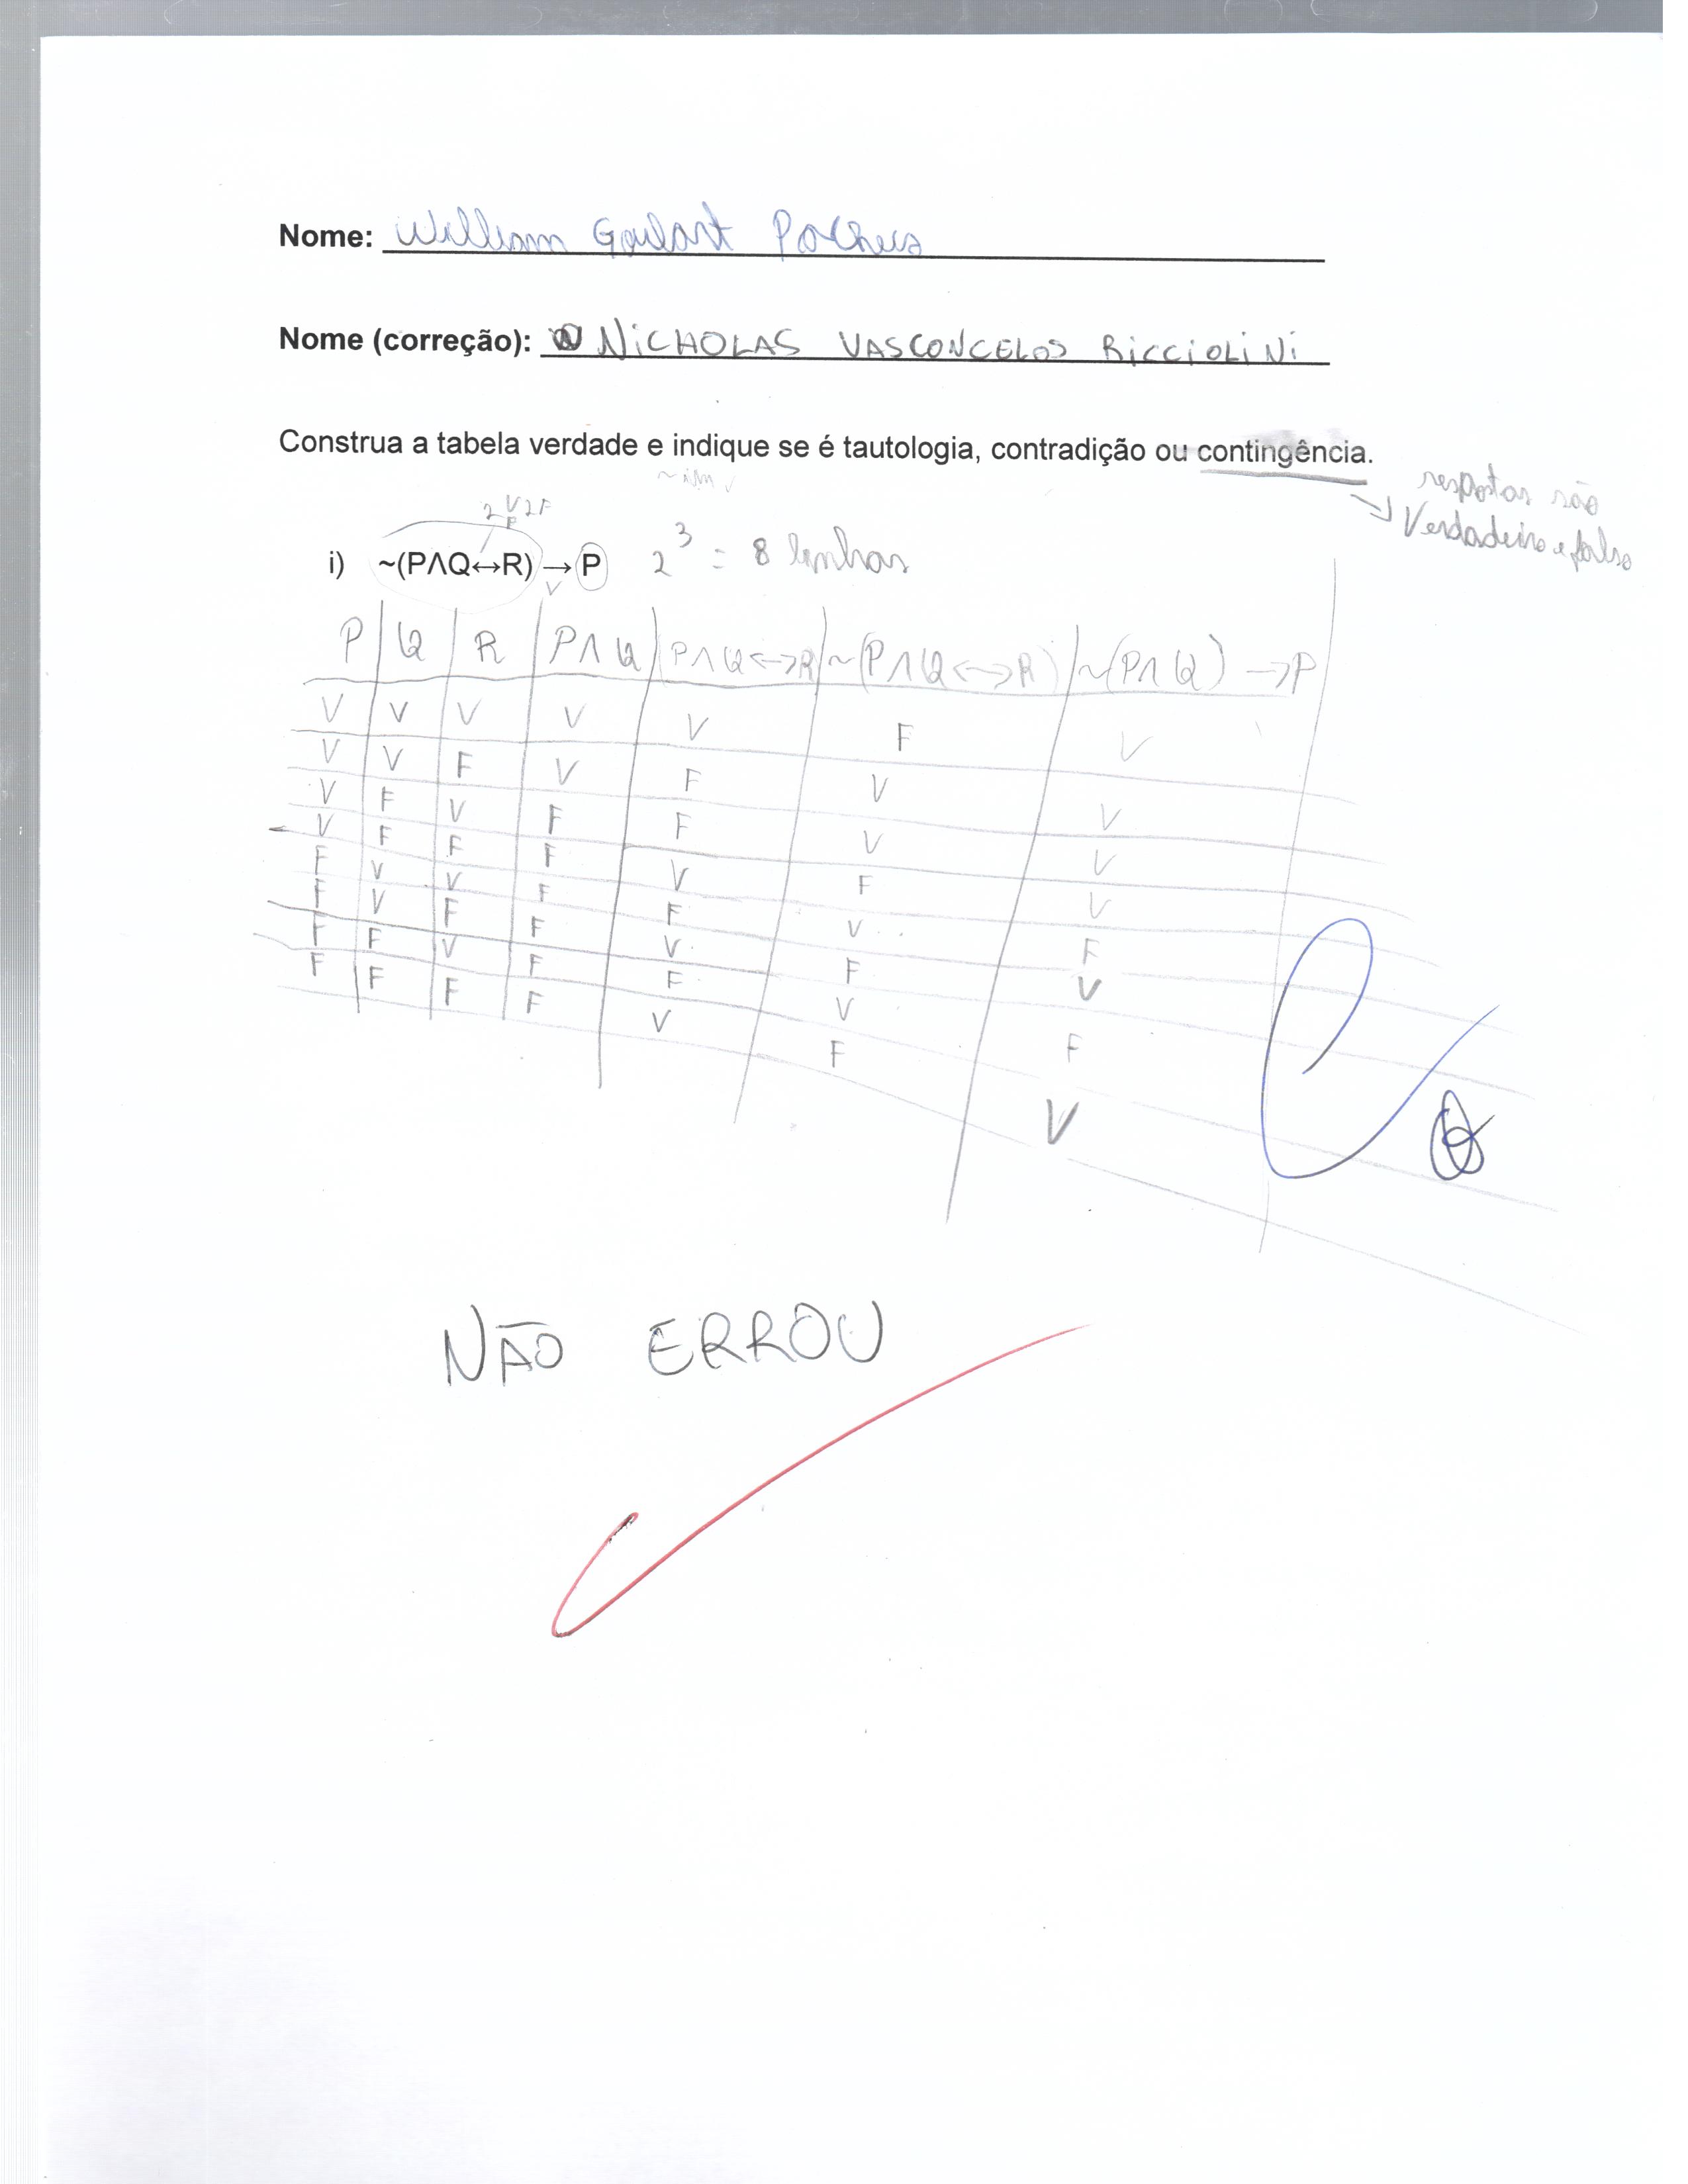 Nome: William Goulart Pacheco
Nome (correção): NICHOLAS VASCONCELOS RICCIOLINI
Construa a tabela verdade e indique se é tautologia, contradição ou contingência.
respostas são
Verdadeiro e falso
2V 2F
F
i) ~(P∧Q↔R) → P 2³ = 8 linhas
V
P Q R P∧Q P∧Q↔R ~(P∧Q↔R) ~(P∧Q) →P
V V V V V F V
V V F V F V V
V F V F F V V
V F F F V F V
F V V F F V F
F V F F V F V
F F V F F V F
F F F F V F V
NÃO ERROU